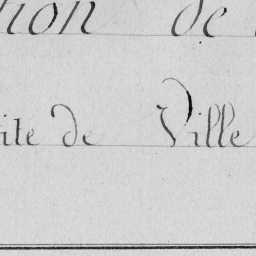 tion de
ite de Ville